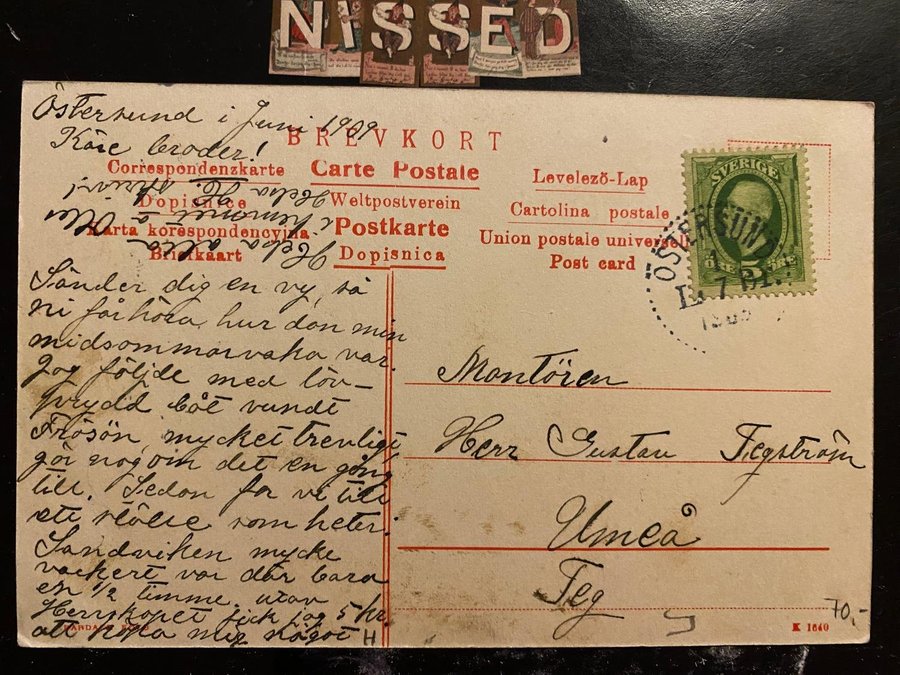 NISSED
Östersund i Juni 1909
Käre broder!
BREVKORT
Correspondenzkarte
Carte Postale
Levelező-Lap
Dopisnice
Weltpostverein
Cartolina postale
Karta korespondencyjna
Postkarte
Union postale universelle
Briefkaart
Dopisnica
Post card
SVERIGE
5
ÖRE ÖRE
ÖSTERSUND
1909
Sänder dig en vy, så
ni får höra, hur dan min
midsommarvaka var.
Jag följde med löv-
prydd båt rundt
Frösön, mycket trevligt
gör nog om det en gång
till. Sedan for vi till
ett ställe som heter:
Sandviken mycke
vackert var där bara
en 1/2 timme, utav
Herrskapet fick jag 5 kr.
att köpa mig något
H
Helsa alla
Helsa
skriv!
Montören
Herr Gustav Tegström
Umeå
Teg
70.-
K 1640